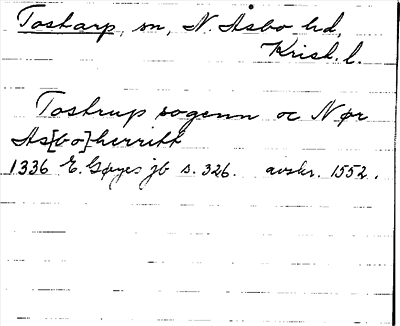 Tostarp, sn, N. Åsbo hd,
Krist. l.
Tostrup sogenn oc Nør
As[bo]herritt
1336 E. Gøyes jb s. 326. avskr. 1552.